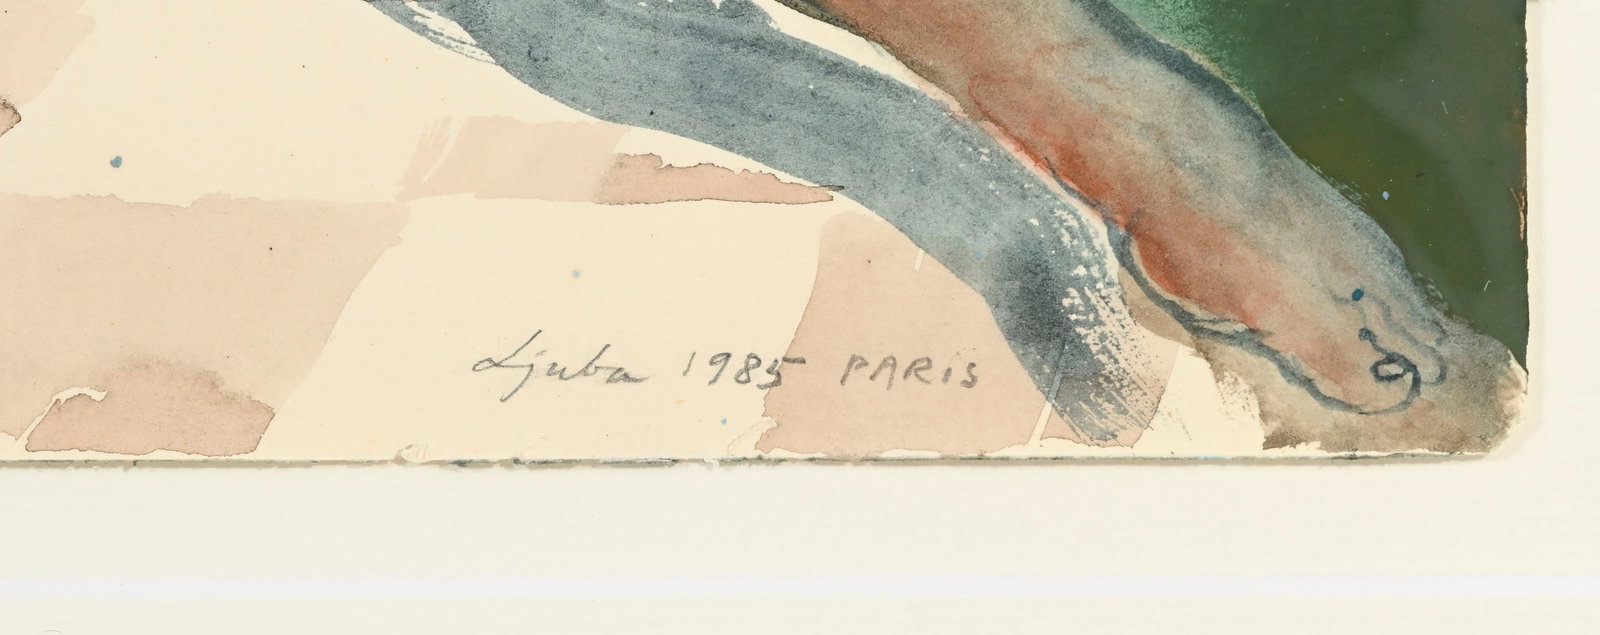 Ljuba 1985 PARIS